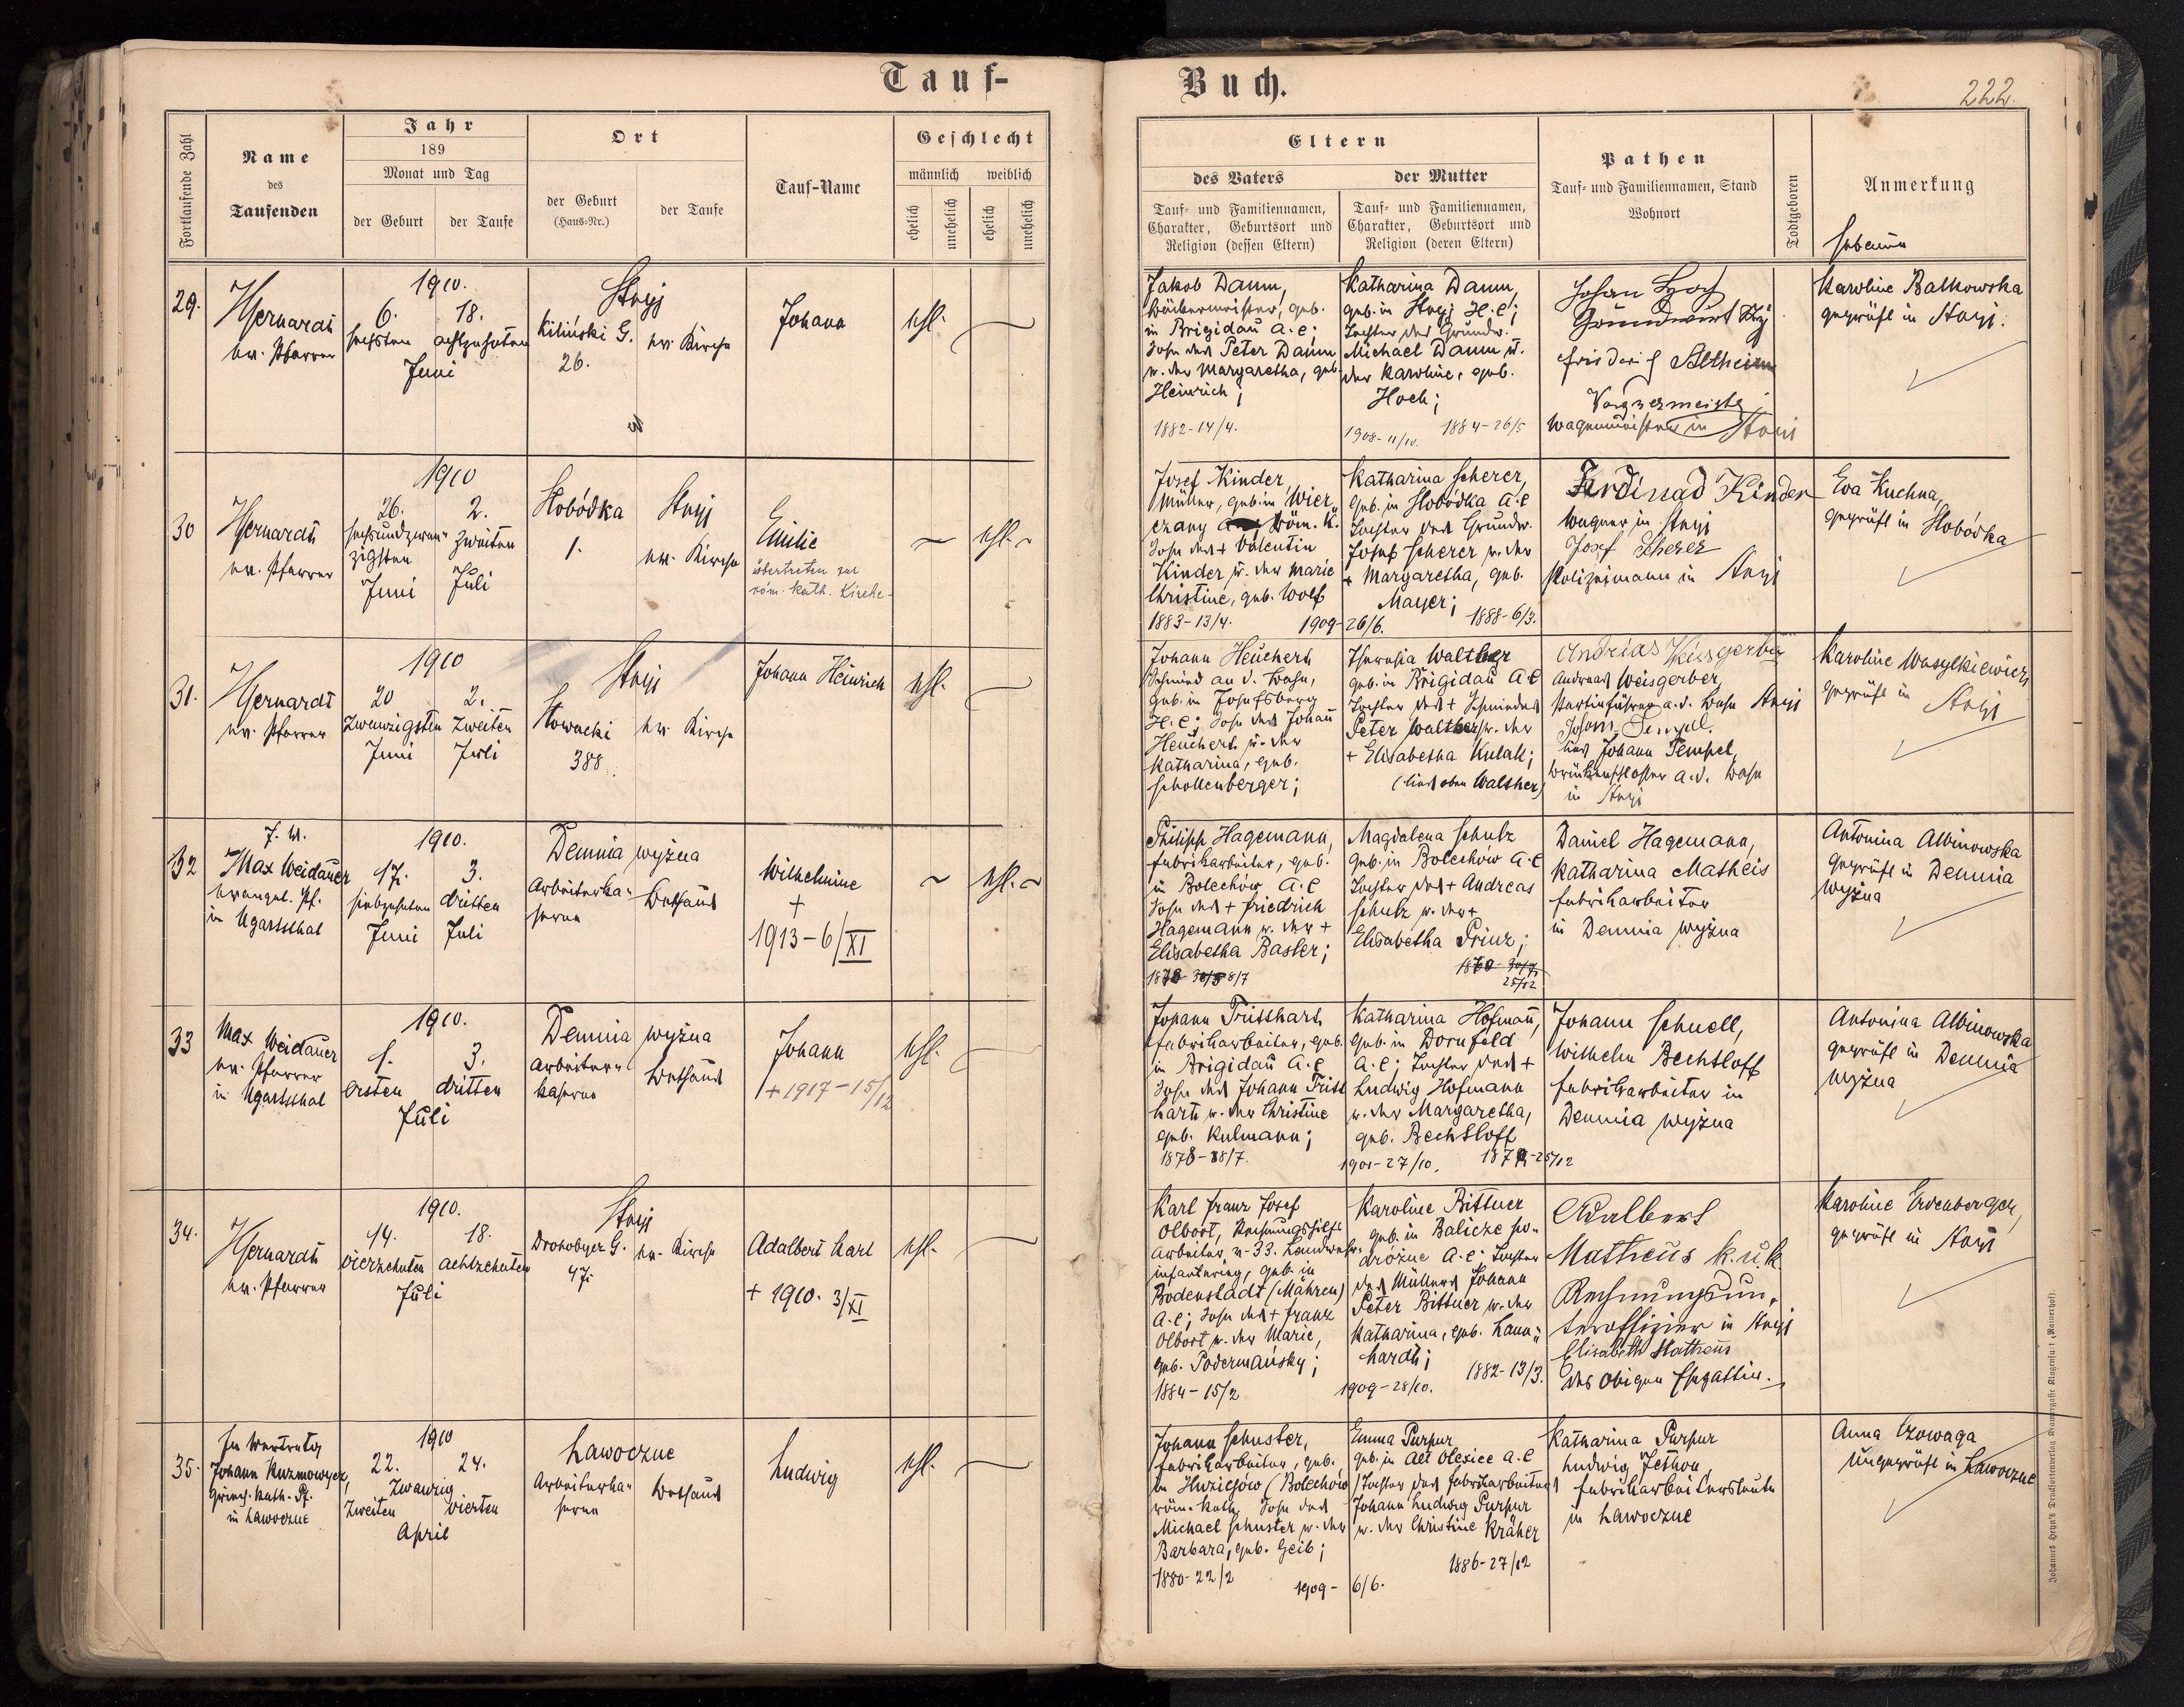 Tauf-
Buch.
222.
Fortlaufende Zahl
Name
des
Taufenden
Jahr
189
Monat und Tag
der Geburt
der Taufe
Ort
der Geburt
(Haus-Nr.)
der Taufe
Tauf-Name
Geschlecht
männlich
weiblich
ehelich
unehelich
ehelich
unehelich
Eltern
des Vaters
Tauf- und Familiennamen,
Charakter, Geburtsort und
Religion (dessen Eltern)
der Mutter
Tauf- und Familiennamen,
Charakter, Geburtsort und
Religion (deren Eltern)
Pathen
Tauf- und Familiennamen, Stand
Wohnort
Todtgeboren
Anmerkung
Hebamme
29.
ev. Pfarrer
1910.
6. 18.
sechsten achtzehnten
Juni
Stryj
Kiliński G. ev. Kirche
26.
Johann
ehl.
Jakob Daum,
geb.
in Brigidau A.C;
Sohn des Peter Daum
u. der Margaretha, geb.
Heinrich;
1882-14/4.
Katharina Daum,
geb. in Stryj H.C;
Tochter des Grundw.
Michael Daum u.
der Karoline, geb.
Hoch;
1908-11/10. 1884-26/5
Johan Hoch
Grundwirt Stryj
Friderich Altheim
Wagnermeister
Wagenmeister in Stryj
Karoline Balkowska
geprüft in Stryj.
30
ev. Pfarrer
1910
26. 2.
sechsundzwan- zweiten
zigsten
Juni Juli
Slobódka Stryj
1. ev. Kirche
Emilie
übertreten zur
röm. kath. Kirche
ehl.
Josef Kinder
Müller, geb. in Wier-
czany röm. K.
Sohn des + Valentin
Kinder u. der Marie
Christine, geb. Wolf
1883-13/4. 1909-
Katharina Scherer,
geb. in Slobódka A.C
Tochter des Grundw.
Josef Scherer u. der
+ Margaretha, geb.
Mayer;
26/6. 1888-6/3.
Ferdinad Kinder
Wagner in Stryj
Josef Scherer
Polizeimann in Stryj
Eva Kuchna,
geprüft in Slobódka
31.
ev. Pfarrer
1910
20 2.
Zwanzigsten Zweiten
Juni Juli
Stryj
Slowacki ev. Kirche
388
Johann Heinrich
ehl.
Johann Heuchert
Schmied an d. Bahn,
geb. in Josefsberg
H.C; Sohn des Johann
Heuchert u. der
Katharina, geb.
Schollenberger;
Theresia Walther
geb. in Brigidau A.C
Tochter des + Schmiedes
Peter Walther u. der
+ Elisabetha Kulak;
(lies oben Walther)
Andrias Weisgerber
Andreas Weisgerber,
Partieführer a.d. Bahn Stryj
Johann Tempel.
lies Johann Tempel,
Brückenschlosser a.d. Bahn
in Stryj
Karoline Wasylkiewicz,
geprüft in Stryj
32
Max Weidauer
evangel. Pf.
in Ugartsthal
1910.
17. 3.
siebzehnten dritten
Juni Juli
Demnia wyżna
Arbeiterka- Bethaus
serne
Wilhelmine
+
1913-6/XI
ehl.
Philipp Hagemann,
Fabrikarbeiter, geb.
in Bolechów A.C
Sohn des + Friedrich
Hagemann u. der +
Elisabetha Basler;
Magdalena Schulz
geb. in Bolechów A.C
Tochter des + Andreas
Schulz u. der +
Elisabetha Prinz;
25/12
Daniel Hagemann,
Katharina Matheis
Fabrikarbeiter
in Demnia wyżna
Antonina Albinowska
geprüft in Demnia
wyżna
33
Max Weidauer
ev. Pfarrer
in Ugartsthal
1910.
1. 3.
ersten dritten
Juli
Demnia wyżna
Arbeiter- Bethaus
kaserne
Johann
+ 1917-15/12
ehl.
Johann Trisshart
Fabrikarbeiter, geb.
in Brigidau A.C
Sohn des Johann Triss
hart u. der Christine
geb. Kulmann;
Katharina Hofmann,
geb. in Dornfeld
A.C; Tochter des +
Ludwig Hofmann
u. der Margaretha,
geb. Bechtloff
1901-27/10.
Johann Schnell,
Wilhelm Bechtloff
Fabrikarbeiter in
Demnia wyżna
Antonina Albinowska
geprüft in Demnia
wyżna
34.
ev. Pfarrer
1910.
14. 18.
vierzehnten achtzehnten
Juli
Stryj
Drohobycer G. ev. Kirche
47.
Adalbert Karl
+ 1910. 3/XI
ehl.
Karl Franz Josef
Olbort, Rechnungshilfs-
arbeiter n. 33. Landwehr-
infanterieg, geb. in
Bodenstadt (Mähren)
A.C; Sohn des + Franz
Olbort u. der Marie,
geb. Podermańsky;
1884-15/2
Karoline Bittner
geb. in Balicze po-
dróżne A.C; Tochter
des Müllers Johann
Peter Bittner u. der
Katharina, geb. Lann-
hardt;
1909-28/10. 1882-13/3.
Adalbert
Matheus k.u.k.
Rechnungsun-
teroffizier in Stryj
Elisabeth Matheus
des obigen Ehegattin.
Karoline Erdenberger,
geprüft in Stryj
35.
In Vertretg
Johann Kuzmowycz,
griech. kath. Pf.
in Lawoczne
1910
22. 24.
Zwanzig
Zweiten vierten
April
Lawoczne
Arbeiterka- Bethaus
serne
Ludwig
ehl.
Johann Schuster,
Fabrikarbeiter, geb.
in Huziejów (Bolechów)
röm. kath. Sohn des
Michael Schuster u. der
Barbara, geb. Geib;
1880-22/2 1909-
Emma Purpur
geb. in Alt Olesice A.C
Tochter des Fabrikarbeiters
Johann Ludwig Purpur
u. der Christine Kräher
1886-27/12
6/6.
Katharina Purpur
Ludwig Jeshon,
Fabrikarbeiterleute
in Lawoczne
Anna Czowaga
ungeprüft in Lawoczne
Johannes Heyn's Drucksortenverlag Kramergasse Klagenfurt (Rainerhof).